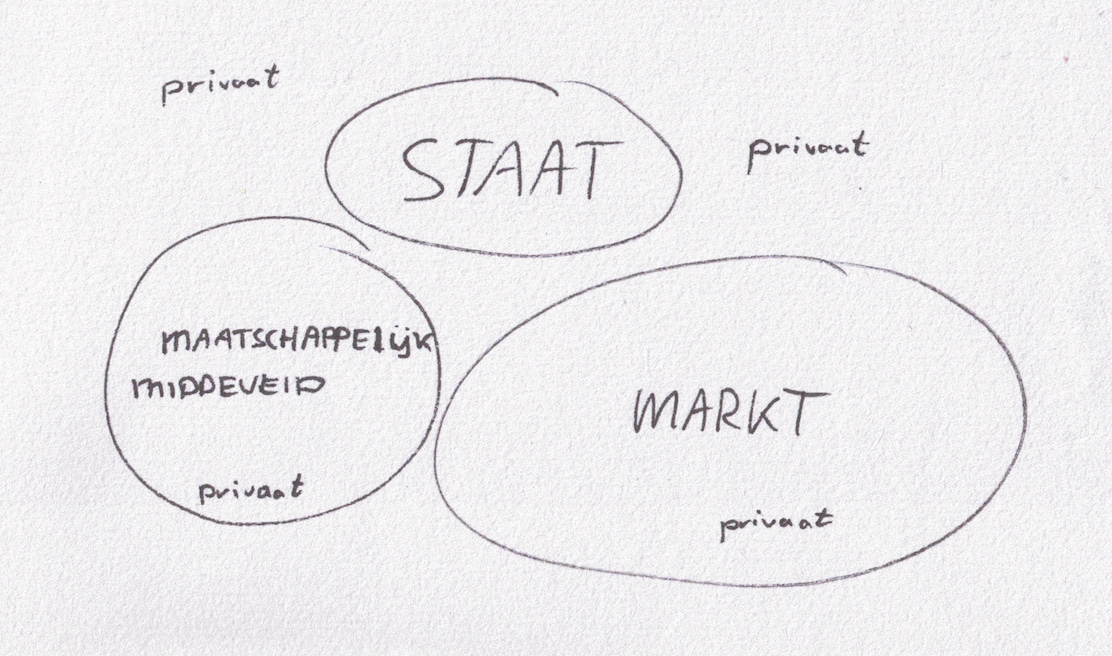 privaat
STAAT
privaat
MAATSCHAPPElijk
MIDDEVElD
MARKT
privaat
privaat